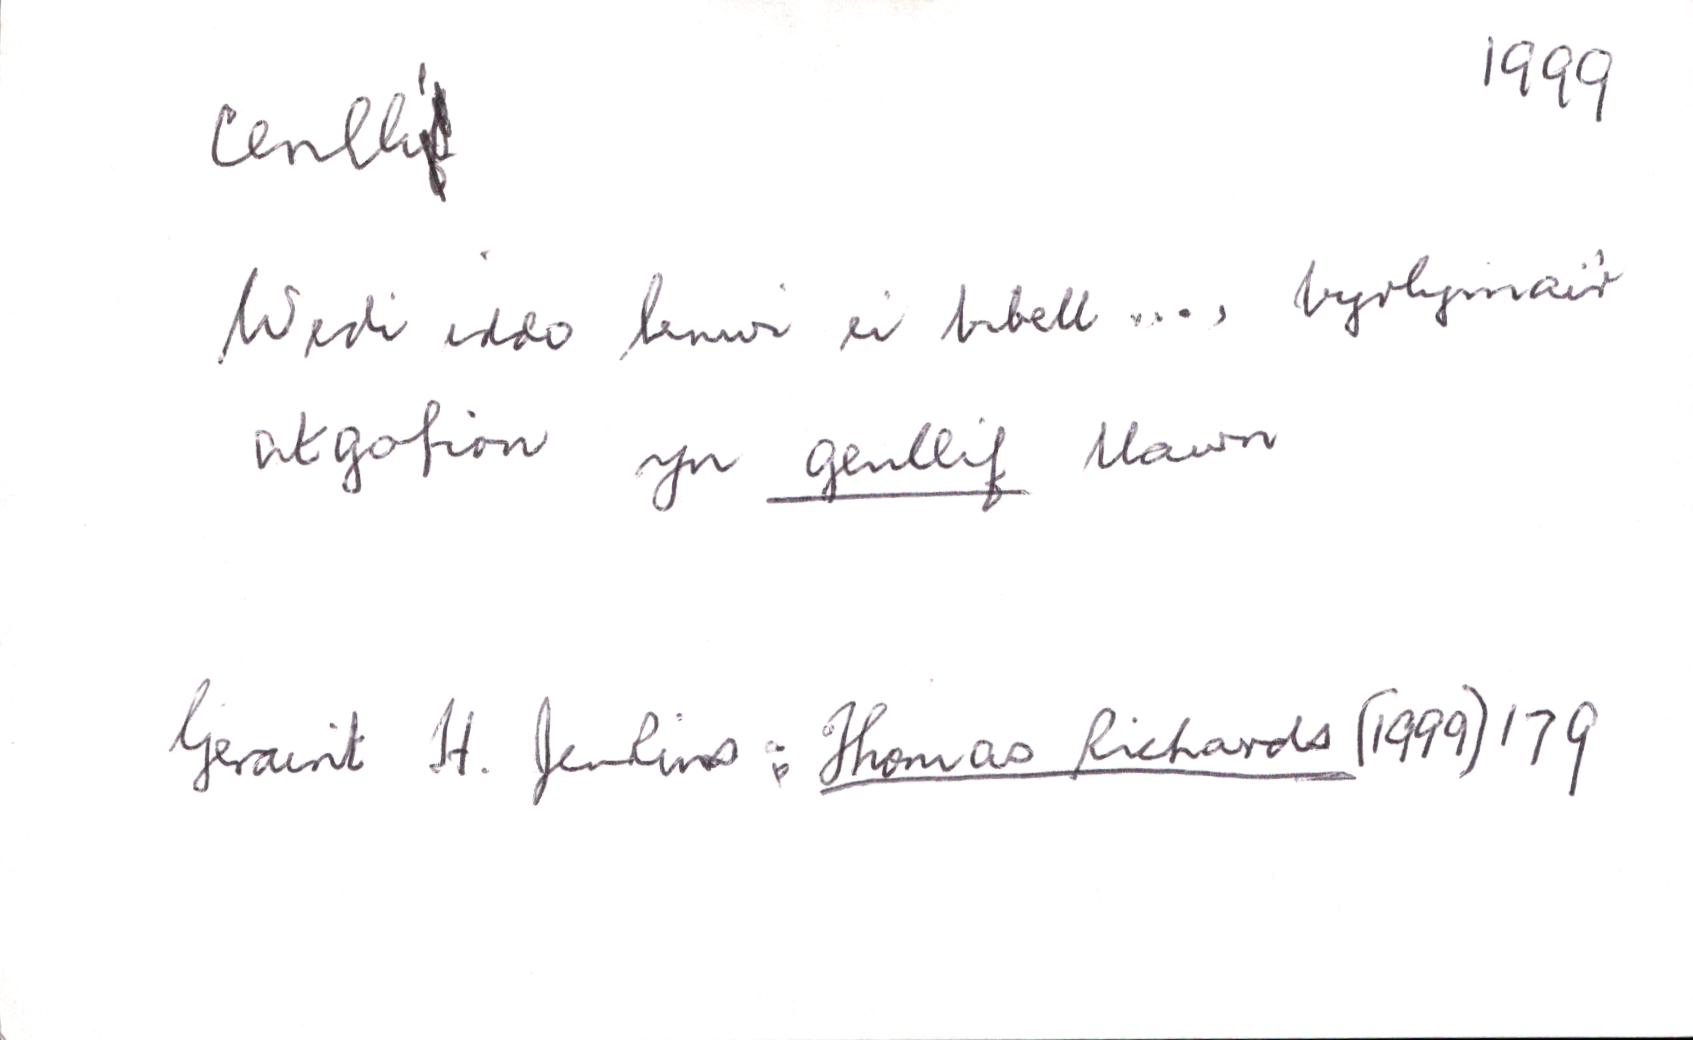 1999
cenllif
Wedi iddo lenwi ei bibell ..., byrlymai'r
atgofion yn genllif llawn
Geraint H. Jenkins: Thomas Richards (1999) 179